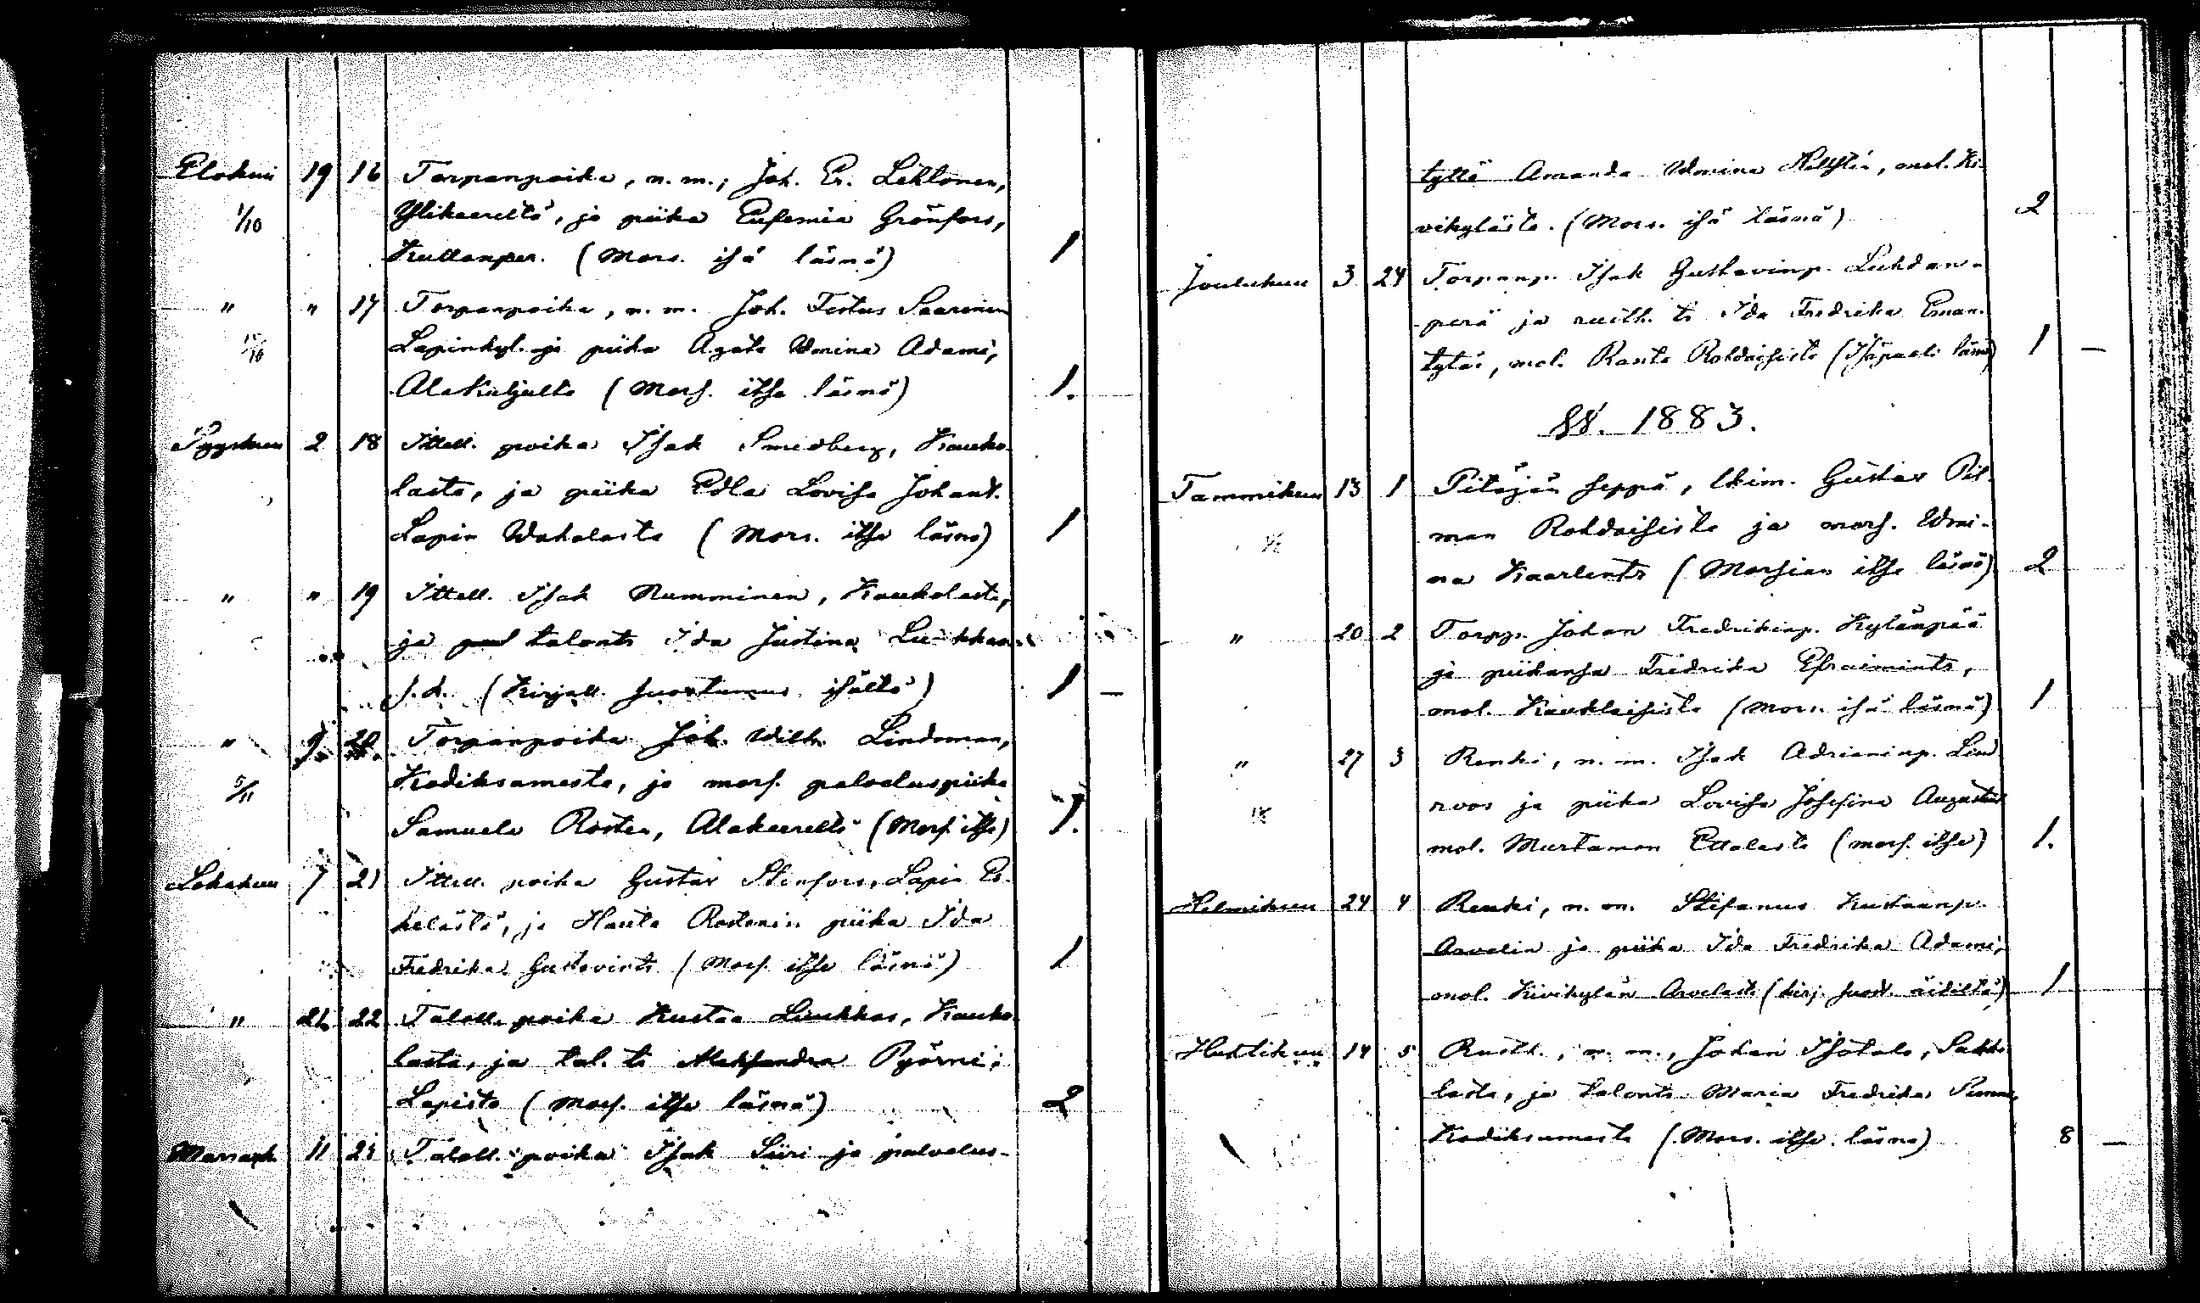 Elokuu 19 16 Torpanpoika, n. m., Joh. Er. Lehtonen,
1/10 Ylikeereltä, ja piika Eufemia Grönfors,
Kullanper. (Mors. isä läsnä) 1
" " 17 Torpanpoika, n. m. Joh. Festus Saarinen
Lapinkyl. ja piika Agata Wmina Adami,
Alakuljulta (Mors. itse läsnä) 1.
Syyskuu 2 18 Ittell. poika Isak Smedberg, Kauko-
lasta, ja piika Edla Lovisa Johant.
Lapin Wahalasta (Mors. itse läsnä) 1
" " 19 Ittell. Isak Numminen, Kaukolasta,
ja talont. Ida Justina Luukkan
s. k. (Kirjall. suostumus isältä) 1 —
" 9. 20. Torpanpoika Joh. Wilh. Lindoman,
5/11 Kodiksamista, ja mors. palveluspiika
Samuela Rosten, Alakeereltä (Mors. itse) 1.
Lokakuu 7 21 Ittell. poika Gustav Stenfors, Lapin
kelästä, ja Hauta Rostenin piika Ida
Fredrika Gustavint. (Mors. itse läsnä) 1
" 22 Taloll. poika Kustaa Luukkas, Kauko-
lasta, ja tal. t. Aleksandra Pyörni,
Lapista (Mors. itse läsnä) 2
Marrask. 11 23 Taloll. poika Isak Siiri ja palvelus-
tyttö Amanda Wmina mol. Ki-
vikylästä. (Mors. isä läsnä) 2
Joulukuu 3 24 Torpanp. Isak Gustavinp. Luhdan-
perä ja rusth. t. Ida Fredrika Eman.
tytär, mol. Ranta Rohdaisista (Isäpuoli läsnä) 1 —
1883.
Tammikuu 13 1 Pitäjän seppä, lkim. Gustav Pil-
man Rohdaisista ja mors. Wmi-
na Kaarlent. (Morsian itse läsnä) 2
" 20 2 Torpp. Johan Fredrikinp. Kylänpää
ja piikansa Fredrika Efraimint.,
mol. Kauklaisista (Mors. isä läsnä) 1
" 27 3 Renki, n. m. Isak Adrianinp. Lind
roos ja piika Lovisa Josefina Augustint.
mol. Murtamon Ettalasta (mors. itse) 1.
Helmikuu 24 4 Renki, n. m. Stefanus Kustaanp.
Arvelin ja piika Ida Fredrika Adami,
mol. Kivikylän Arvelasta (kirj. suost. äidiltä) 1
Huhtikuu 14 5 Rusth., n. m., Johan Isotalo,
lasta, ja talont. Maria Fredrika
Kodiksamista (Mors. itse läsnä) 8 —